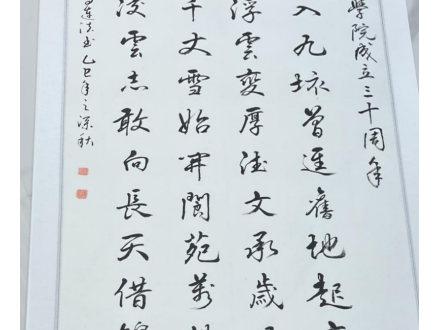 學院成立三十周年
入九垓曾進舊地起
浮雲變厚德文承歲
千丈雪始開閬苑萬
凌雲志敢向長天借
書乙巳年之深秋